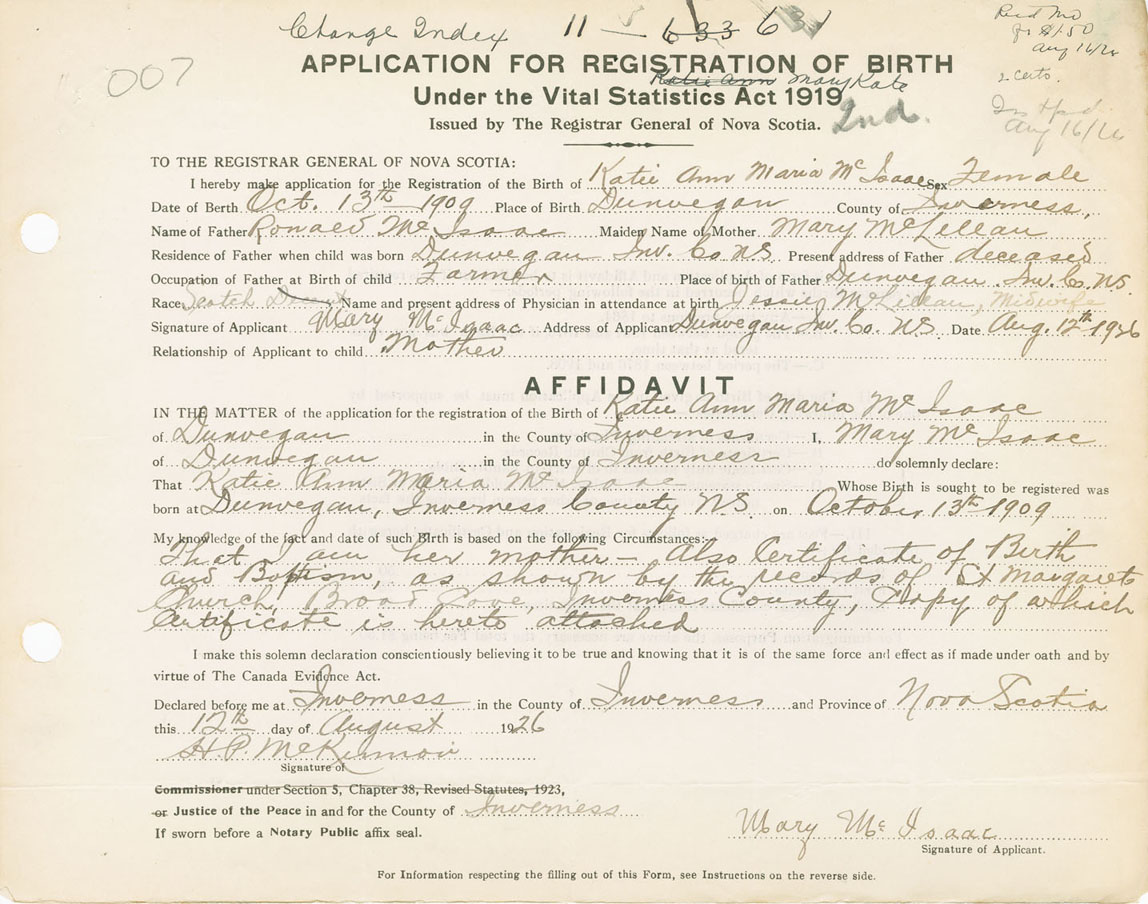 Change Index 11 - 633 63
Recd Mo
for $1.50
Aug 16/26
2 certs.
007
APPLICATION FOR REGISTRATION OF BIRTH
Katie Ann Mary Kate
Under the Vital Statistics Act 1919
2nd.
Issued by The Registrar General of Nova Scotia.
Aug 16/26
TO THE REGISTRAR GENERAL OF NOVA SCOTIA:
I hereby make application for the Registration of the Birth of Katie Ann Maria McIsaac Sex Female
Date of Berth Oct. 13th 1909 Place of Birth Dunvegan County of Inverness,
Name of Father Ronald McIsaac Maiden Name of Mother Mary McLellan
Residence of Father when child was born Dunvegan Inv. Co. N.S. Present address of Father deceased
Occupation of Father at Birth of child Farmer Place of birth of Father Dunvegan Inv. Co. N.S.
Race Scotch Name and present address of Physician in attendance at birth Jessie McLellan, Midwife
Signature of Applicant Mary McIsaac Address of Applicant Dunvegan Inv. Co. N.S. Date Aug. 12th 1926
Relationship of Applicant to child Mother
AFFIDAVIT
IN THE MATTER of the application for the registration of the Birth of Katie Ann Maria McIsaac
of Dunvegan in the County of Inverness I, Mary McIsaac
of Dunvegan in the County of Inverness do solemnly declare:
That Katie Ann Maria McIsaac Whose Birth is sought to be registered was
born at Dunvegan, Inverness County N.S. on October 13th 1909
My knowledge of the fact and date of such Birth is based on the following Circumstances:-
That I am her mother - Also Certificate of Birth
and Baptism, as shown by the records of St Margarets
Church, Broad Cove, Inverness County, Copy of which
Certificate is hereto attached
I make this solemn declaration conscientiously believing it to be true and knowing that it is of the same force and effect as if made under oath and by
virtue of The Canada Evidence Act.
Declared before me at Inverness in the County of Inverness and Province of Nova Scotia
this 12th day of August 1926
H.P. McKinnon
Signature of
Commissioner under Section 5, Chapter 38, Revised Statutes, 1923,
or Justice of the Peace in and for the County of Inverness
If sworn before a Notary Public affix seal.
Mary McIsaac
Signature of Applicant.
For Information respecting the filling out of this Form, see Instructions on the reverse side.